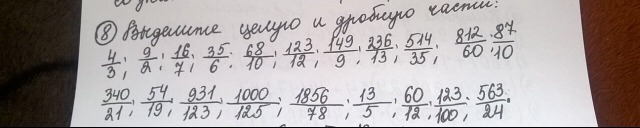 ⑧ Выделите целую и дробную части:
4/3; 9/2; 16/7; 35/6; 68/10; 123/12; 149/9; 236/13; 514/35; 812/60; 87/10
340/21; 54/19; 931/123; 1000/125; 1856/78; 13/5; 60/12; 123/100; 563/24.